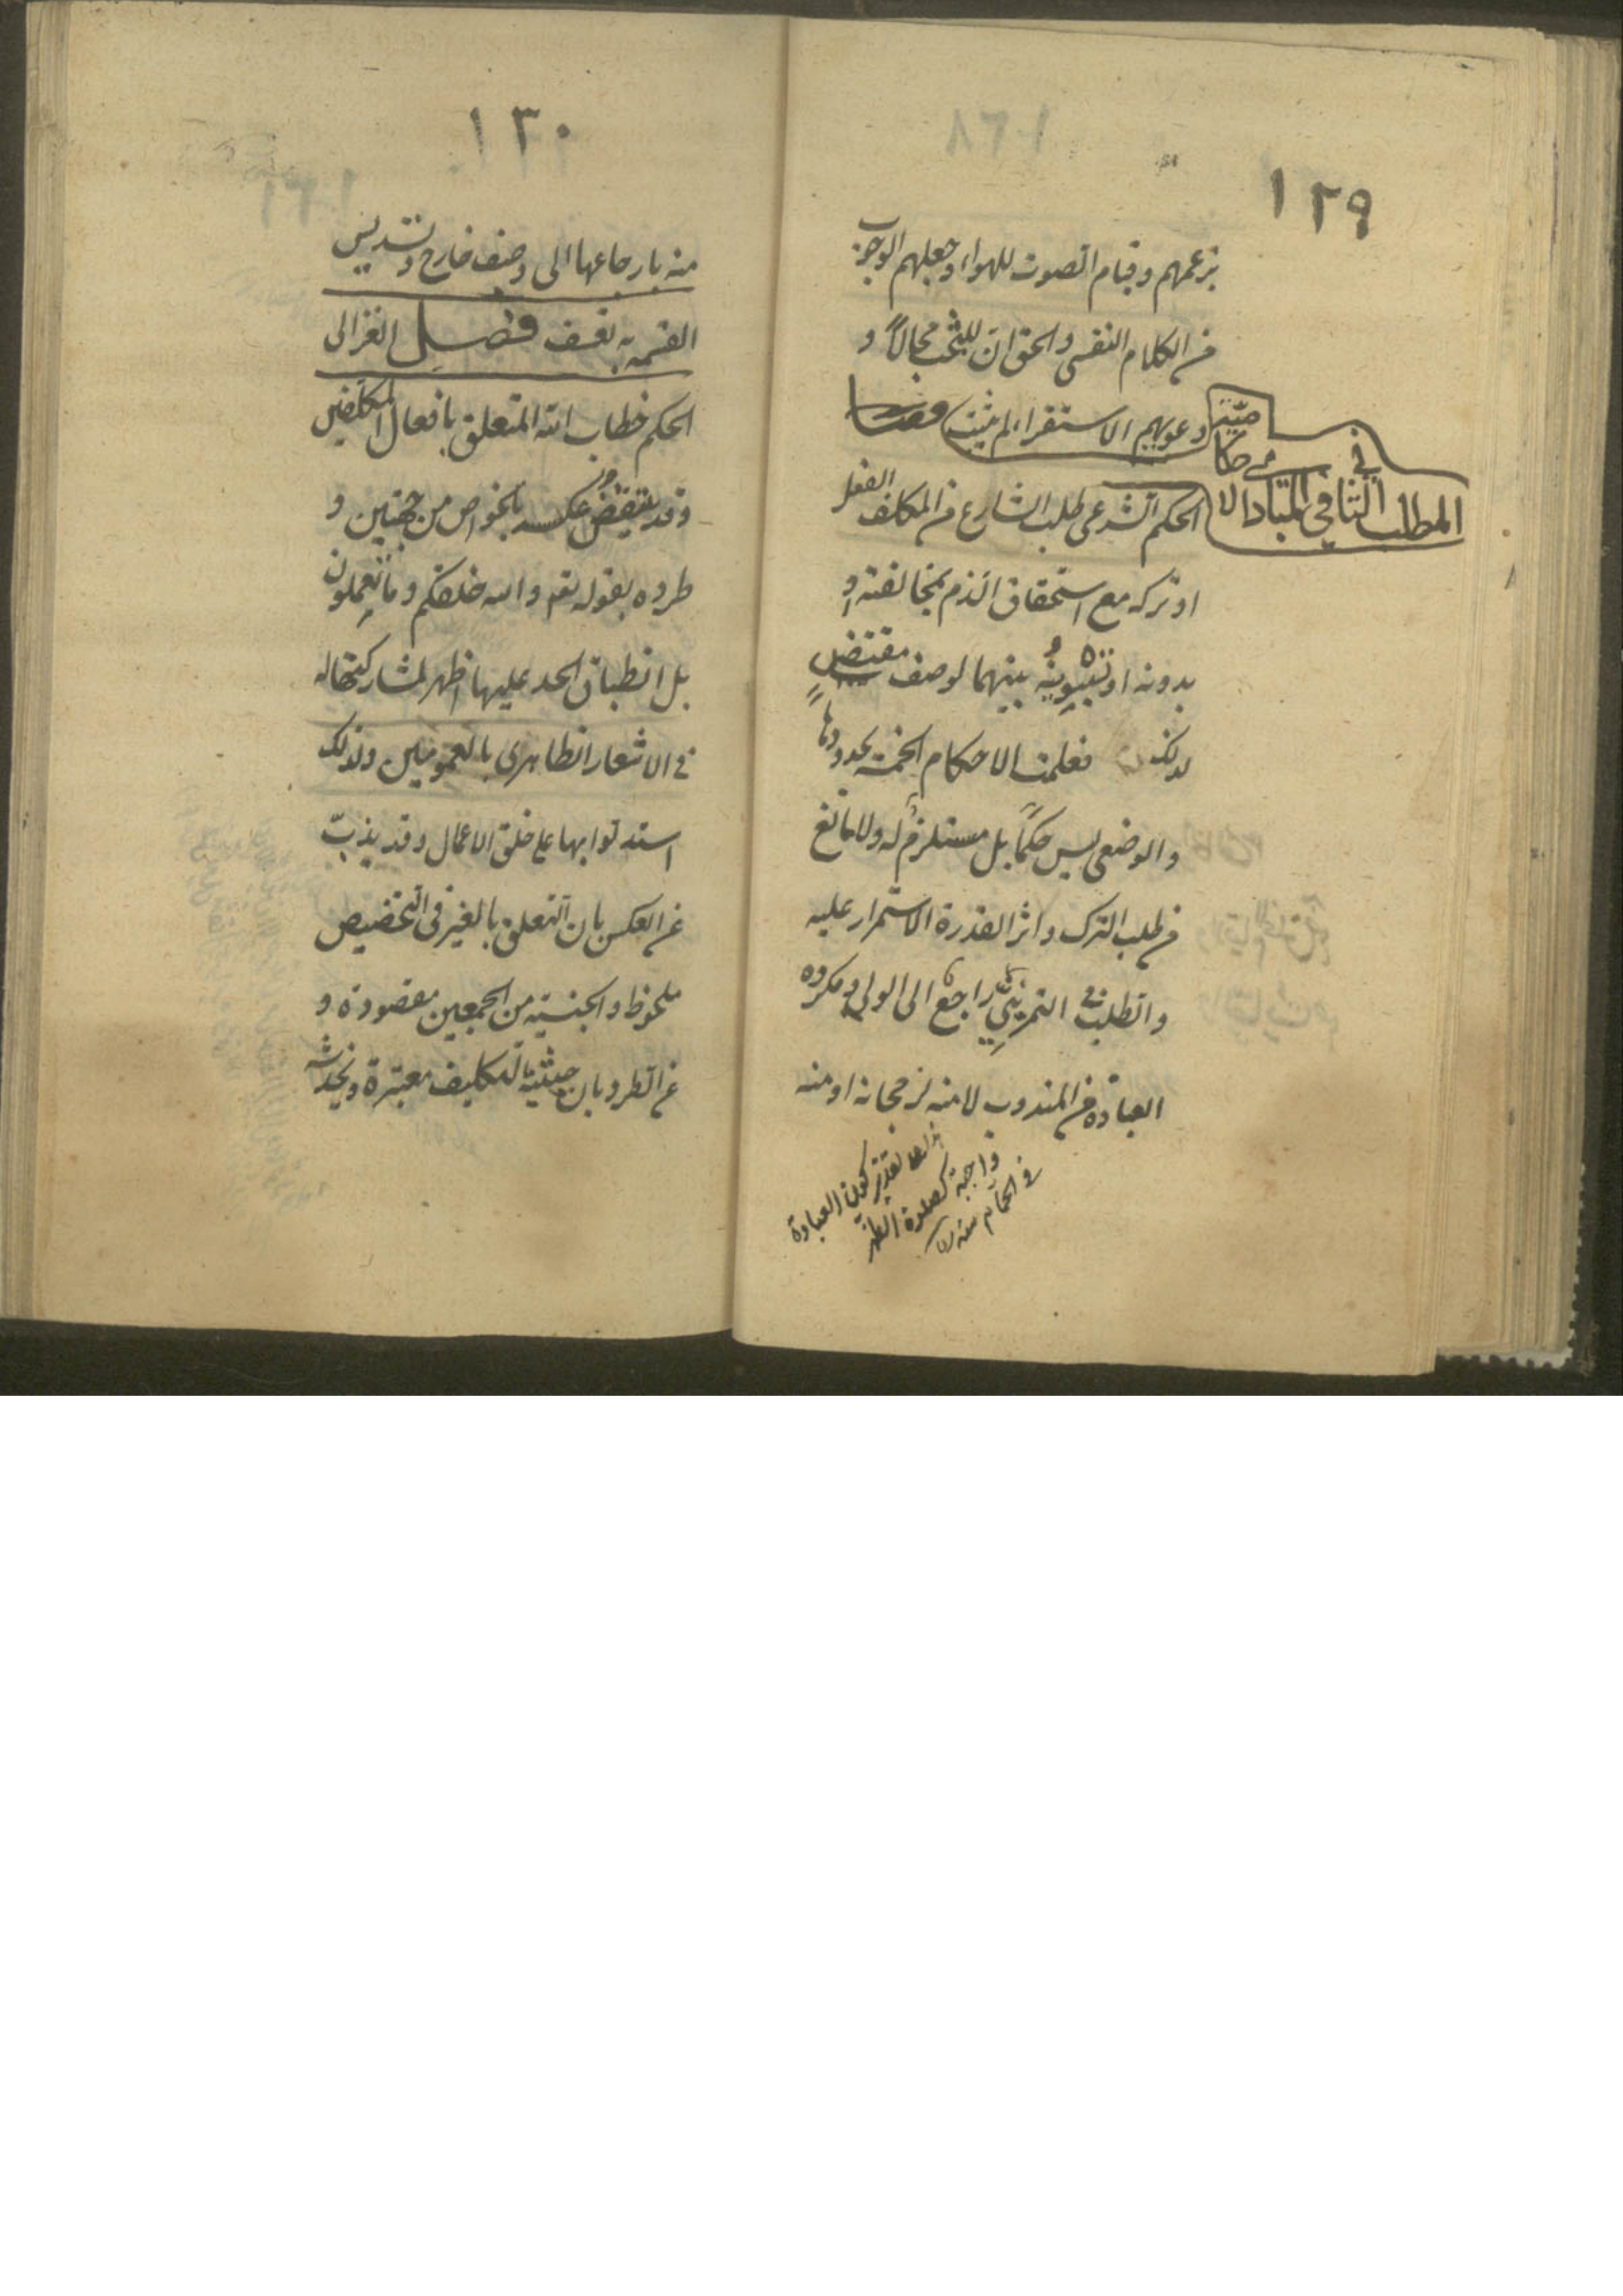 ١٢٩
بزعمهم وقيام الصوت للهواء وجعلهم الوجوب
من الكلام النفسى والحق ان للبحث مجالاً و
دعويهم الاستقراء لم يثبت فصل
المطلب الثانى فى المبادى الاحكامية
الحكم الشرعى طلب الشارع من المكلف الفعل
او تركه مع استحقاق الذم بمخالفته او
بدونه او تسويته بينهما لوصف مقتضٍ
لذلك فعلمت الاحكام الخمسة بحدودها
والوضعى ليس حكماً بل مستلزم له ولا مانع
من طلب الترك واثر القدرة الاستمرار عليه
والطلب فى التمرينى راجع الى الولى ومكروه
العبادة من المندوب لا منه لرجحانه او منه
هذا على تقدير كون العبادة
واجبة كصلوة الظهر
فى الحمام منه
١٣٠
منه بارجاعها الى وصف خارج وتسديس
القسمة به تعسف فصل الغزالى
الحكم خطاب الله المتعلق بافعال المكلفين
وقد ينتقض عكسه بالخواص من جهتين و
طرده بقوله تعم والله خلقكم وما تعملون
بل انطباق الحد عليها اظهر لمشاركتها له
فى الاشعار الظاهرى بالعمومين ولذلك
استدلوا بها على خلق الاعمال وقد يذبّ
عن العكس بان التعلق بالغير فى التخصيص
ملحوظ والجنسية من الجمعين مقصودة و
عن الطرد بان حيثية التكليف معتبرة ويخدشه